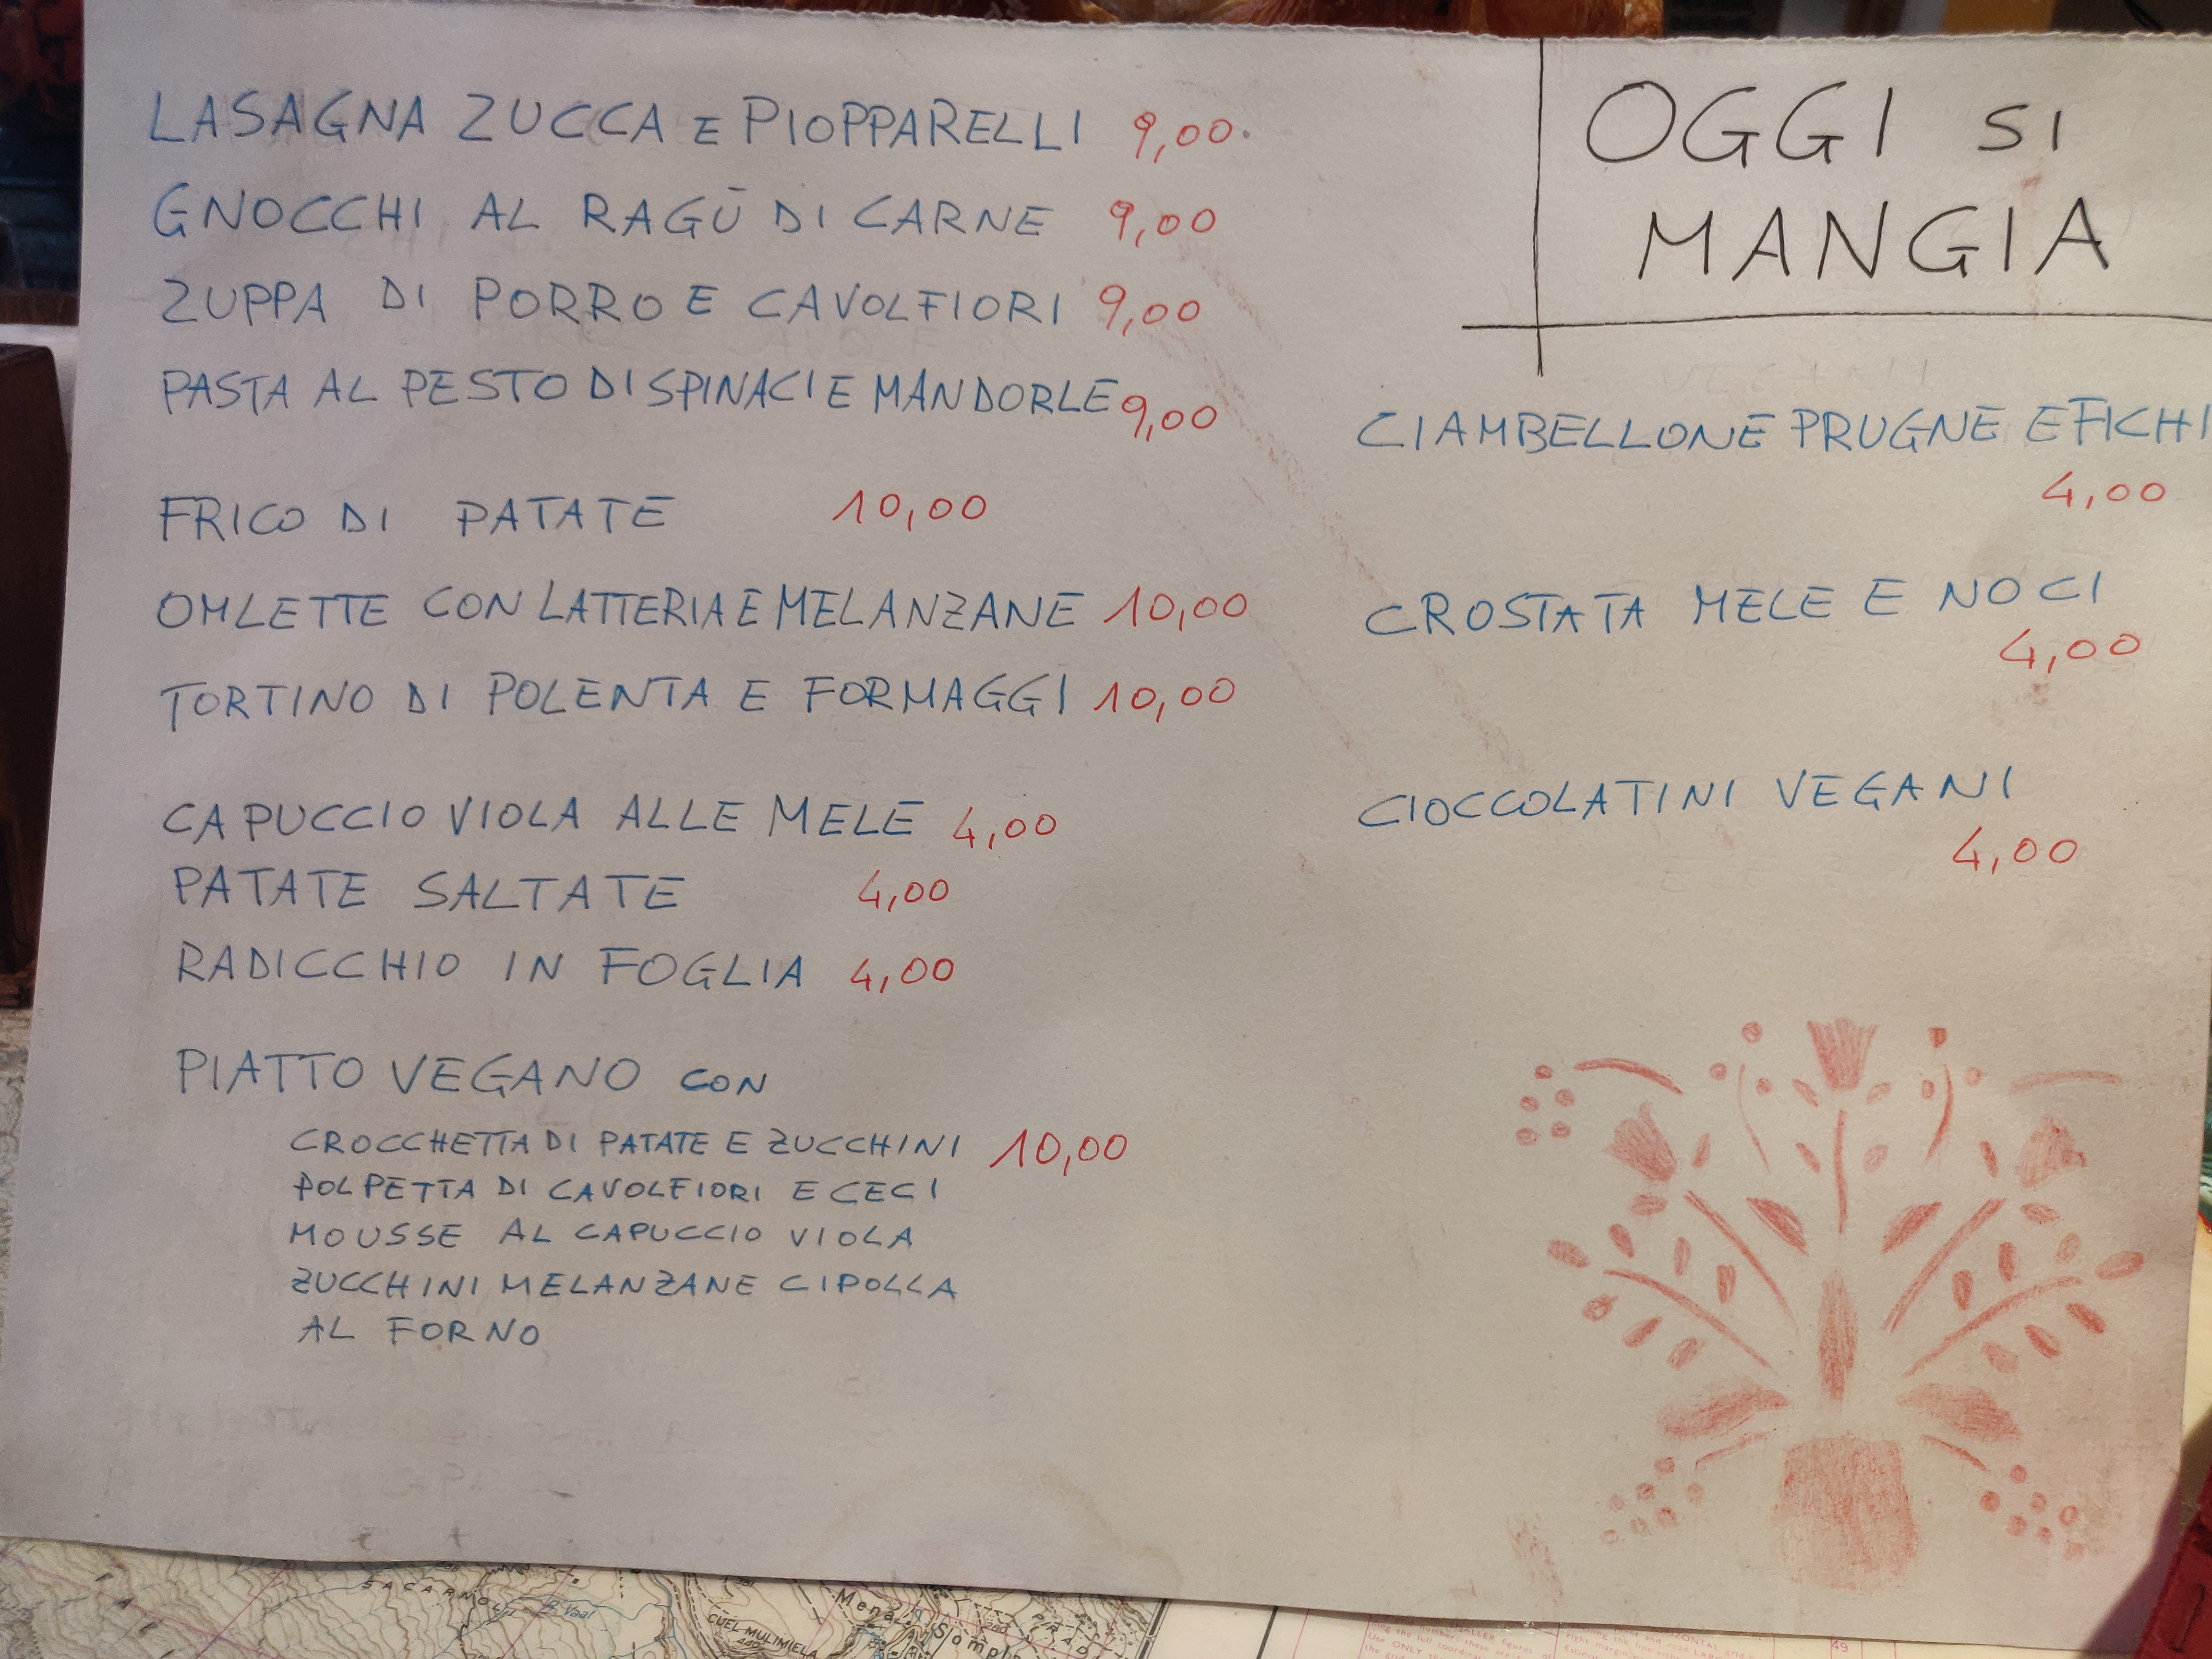 LASAGNA ZUCCA E PIOPPARELLI 9,00
GNOCCHI AL RAGÙ DI CARNE 9,00
ZUPPA DI PORRO E CAVOLFIORI 9,00
PASTA AL PESTO DI SPINACI E MANDORLE 9,00
FRICO DI PATATE 10,00
OMLETTE CON LATTERIA E MELANZANE 10,00
TORTINO DI POLENTA E FORMAGGI 10,00
CAPUCCIO VIOLA ALLE MELE 4,00
PATATE SALTATE 4,00
RADICCHIO IN FOGLIA 4,00
PIATTO VEGANO CON
CROCCHETTA DI PATATE E ZUCCHINI 10,00
POLPETTA DI CAVOLFIORI E CECI
MOUSSE AL CAPUCCIO VIOLA
ZUCCHINI MELANZANE CIPOLLA
AL FORNO
OGGI SI
MANGIA
CIAMBELLONE PRUGNE E FICHI
4,00
CROSTATA MELE E NOCI
4,00
CIOCCOLATINI VEGANI
4,00
CUEL MULIMIELA
49